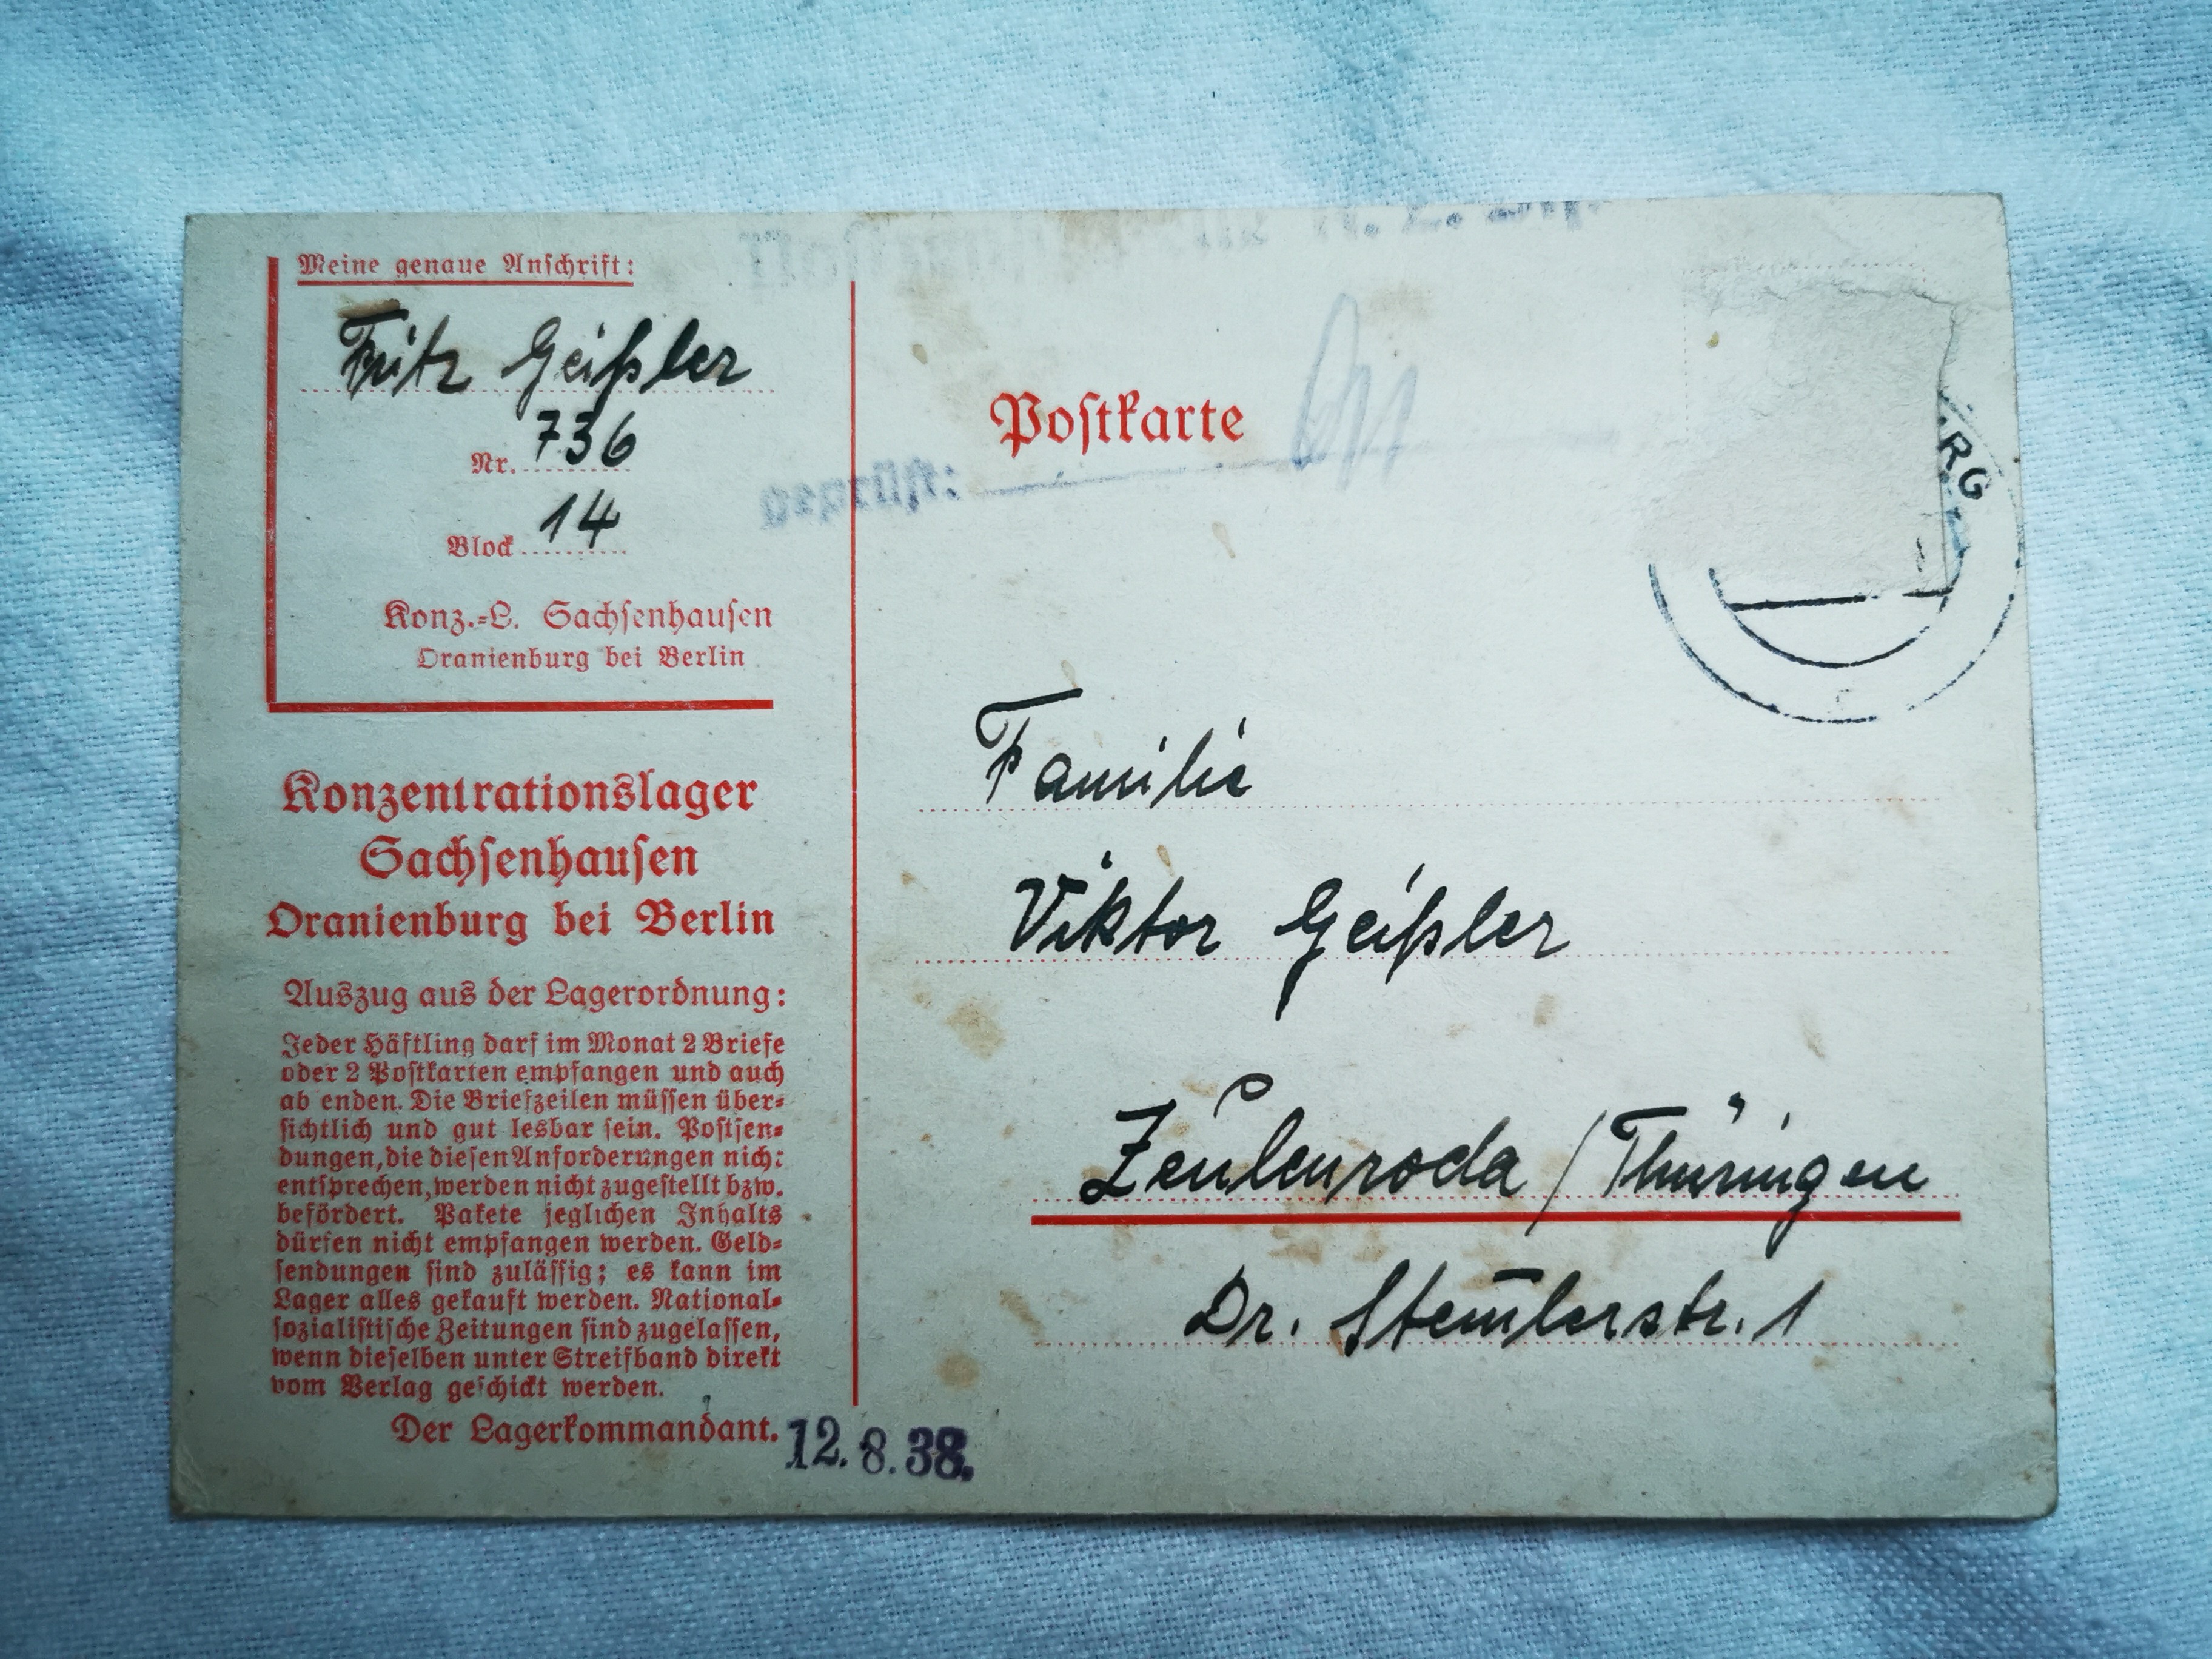 Meine genaue Anschrift:
Fritz Geißler
Nr. 736
Block 14
Konz.-L. Sachsenhausen
Oranienburg bei Berlin
Konzentrationslager
Sachsenhausen
Oranienburg bei Berlin
Auszug aus der Lagerordnung:
Jeder Häftling darf im Monat 2 Briefe
oder 2 Postkarten empfangen und auch
ab enden. Die Briefzeilen müssen über-
sichtlich und gut lesbar sein. Postsen-
dungen, die diesen Anforderungen nicht
entsprechen, werden nicht zugestellt bzw.
befördert. Pakete jeglichen Inhalts
dürfen nicht empfangen werden. Geld-
sendungen sind zulässig; es kann im
Lager alles gekauft werden. National-
sozialistische Zeitungen sind zugelassen,
wenn dieselben unter Streifband direkt
vom Verlag geschickt werden.
Der Lagerkommandant.
12.8.38.
Postkarte
geprüft:
RG
Familie
Viktor Geißler
Zeulenroda / Thüringen
Dr. Stemlerstr. 1